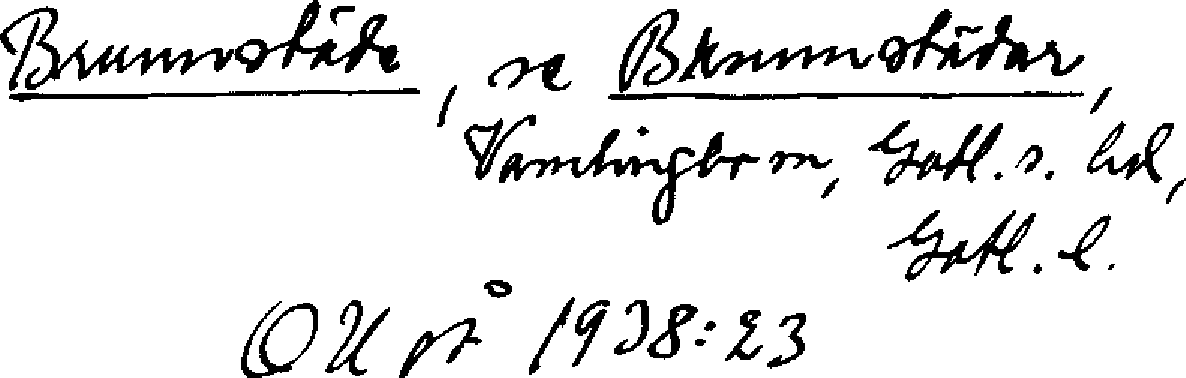 Brunnstäde, se Brunnstädar,
Vamlingbo sn, Gotl. s. hd,
Gotl. l.
OU på 1938:23